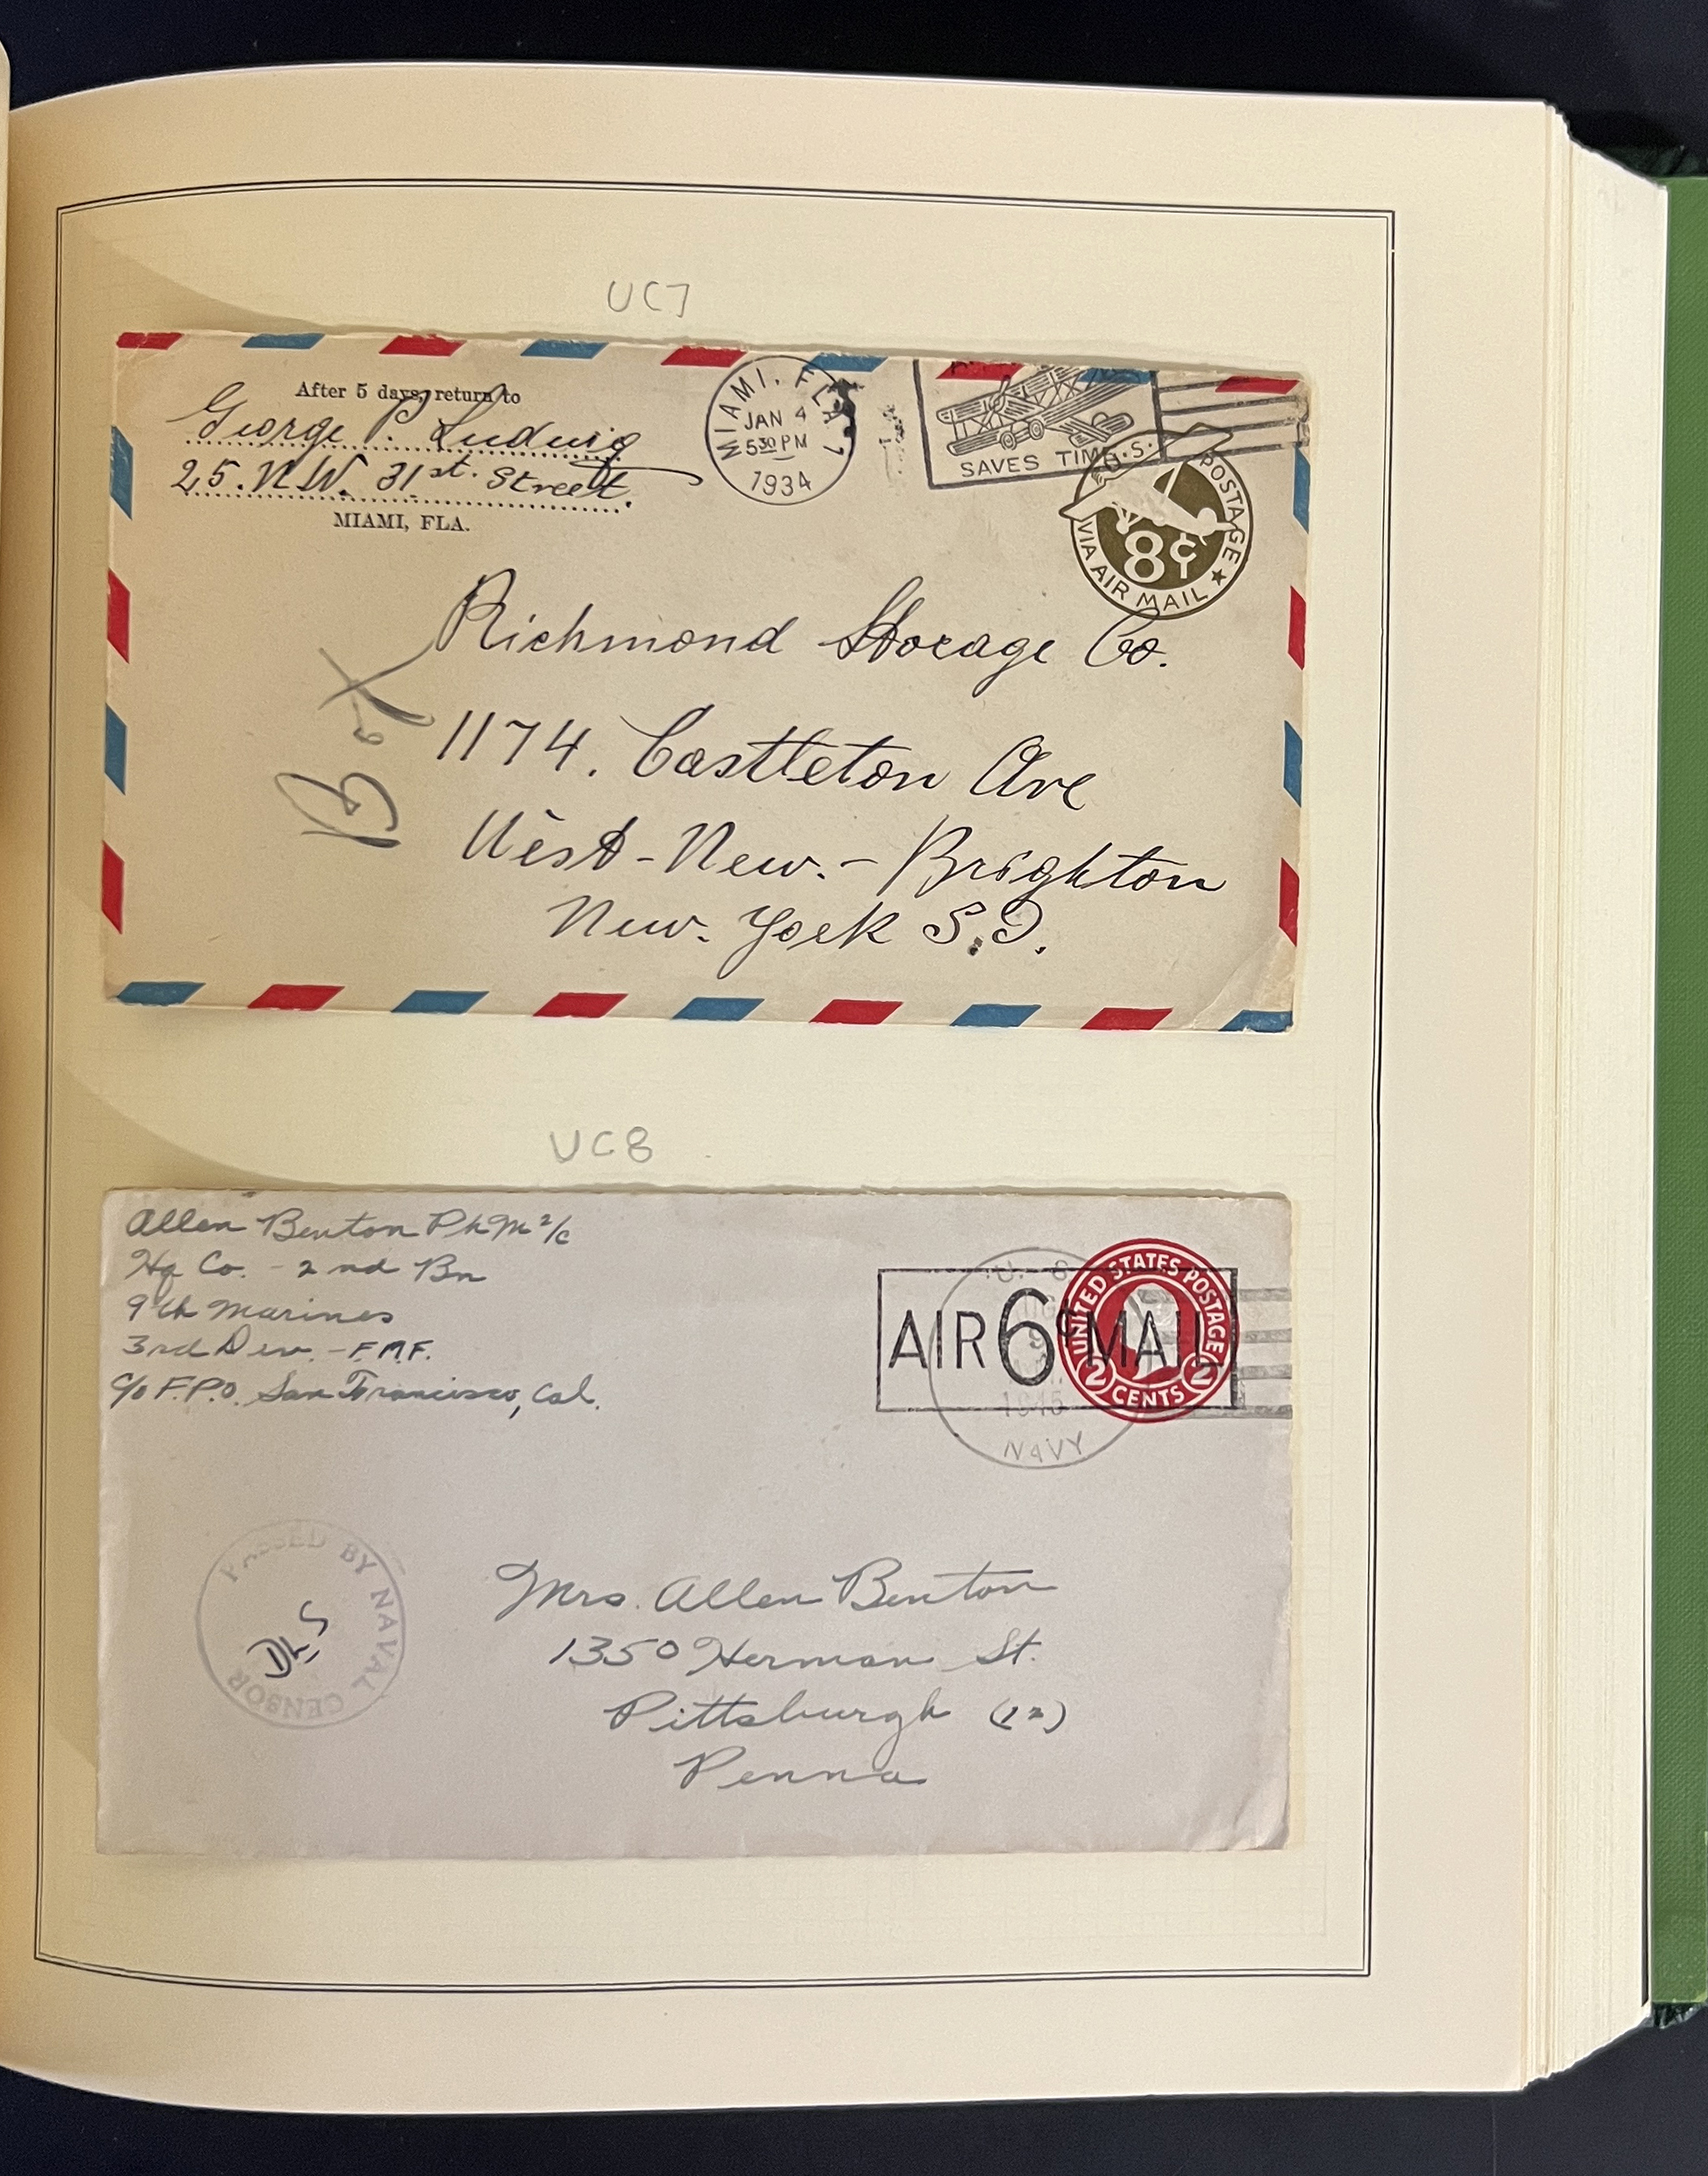 UC7
After 5 days, return to
George P. Ludwig
25. N.W. 31st. Street.
MIAMI, FLA.
MIAMI, FLA. 1
JAN 4
530 PM
1934
SAVES TIME
U.S. POSTAGE
8¢
VIA AIR MAIL
Box
Richmond Storage Co.
1174. Castleton Ave
West-New.-Brighton
New. York S.I.
UC8
Allen Benton PhM 2/c
Hq Co. - 2nd Bn
9th Marines
3rd Div. - F.M.F.
c/o F.P.O. San Francisco, Cal.
U. S.
1945
NAVY
AIR 6¢ MAIL
UNITED STATES POSTAGE
2 CENTS 2
PASSED BY NAVAL CENSOR
DLS
Mrs. Allen Benton
1350 Herman St.
Pittsburgh (12)
Penna